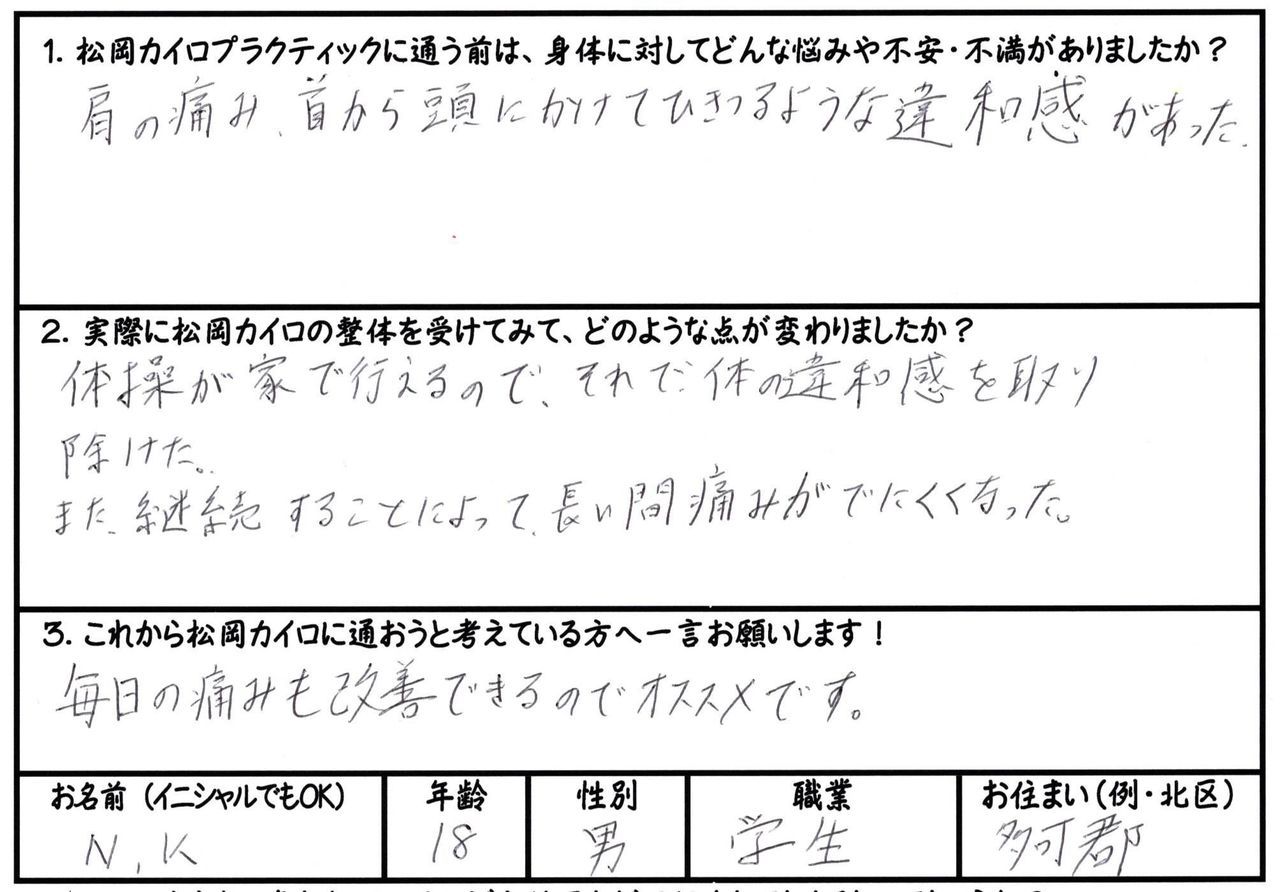 1. 松岡カイロプラクティックに通う前は、身体に対してどんな悩みや不安・不満がありましたか？
肩の痛み、首から頭にかけてひきつるような違和感があった。
2. 実際に松岡カイロの整体を受けてみて、どのような点が変わりましたか？
体操が家で行えるので、それで体の違和感を取り
除けた。
また、継続することによって、長い間痛みがでにくくなった。
3. これから松岡カイロに通おうと考えている方へ一言お願いします！
毎日の痛みも改善できるのでオススメです。
お名前（イニシャルでもOK） 年齢 性別 職業 お住まい（例・北区）
N.K 18 男 学生 多可郡